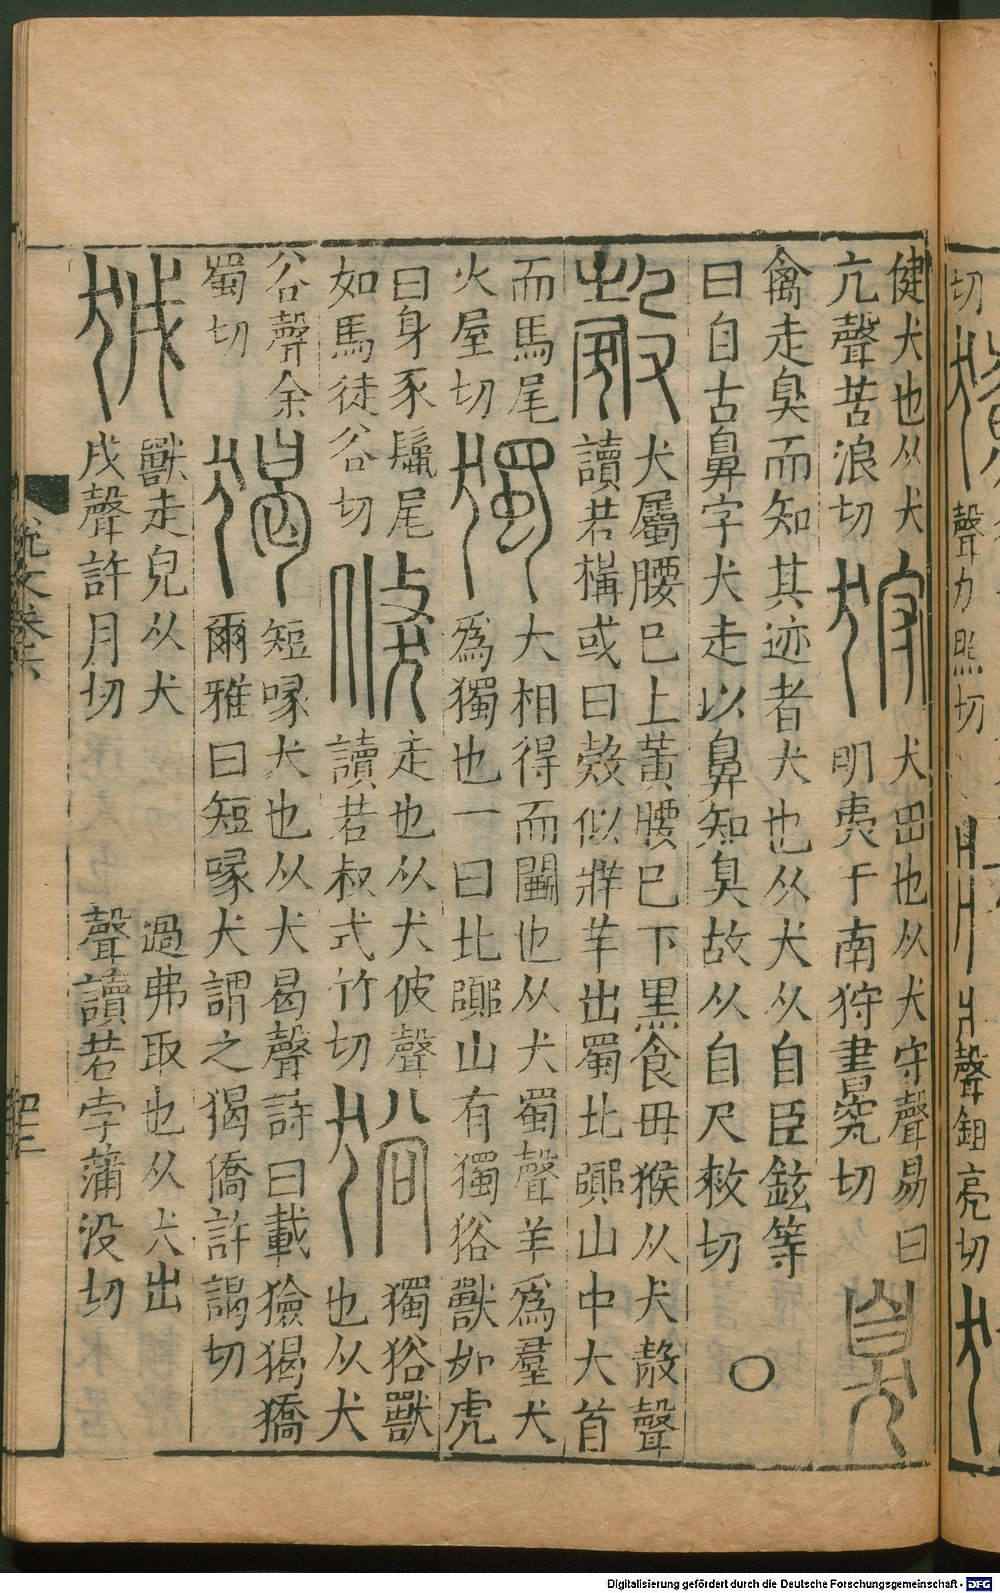 切
聲力照切
聲鉏亮切
健犬也从犬
亢聲苦浪切
狩
犬田也从犬守聲易曰
明夷于南狩書究切
臭
禽走臭而知其迹者犬也从犬从自臣鉉等
曰自古鼻字犬走以鼻知臭故从自尺救切
○
犬屬腰巳上黃腰巳下黑食母猴从犬㱿聲
讀若構或曰㱿似牂羊出蜀北嚻山中犬首
而馬尾
火屋切
獨
犬相得而鬭也从犬蜀聲羊爲羣犬
爲獨也一曰北嚻山有獨𤞞獸如虎
曰身豕鬛尾
如馬徒谷切
倏
走也从犬攸聲
讀若叔式竹切
𤞞
獨𤞞獸
也从犬
谷聲余
蜀切
猲
短喙犬也从犬曷聲詩曰載獫猲獢
爾雅曰短喙犬謂之猲獢許謁切
狘
獸走皃从犬
戉聲許月切
過弗取也从犬出
聲讀若孛蒲没切
说文卷
Digitalisierung gefördert durch die Deutsche Forschungsgemeinschaft - DFG